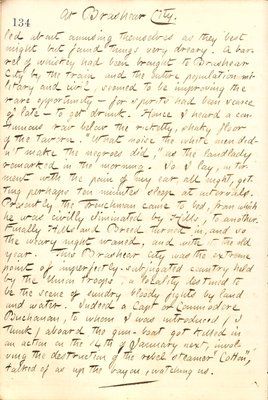 134
At Brashear City.
led about amusing themselves as they best
might but found things very dreary. A bar-
rel of whiskey had been brought to Brashear
City by the train and the entire population mi-
litary and civil, seemed to be improving the
rare opportunity — for spirits had been scarce
of late — to get drunk. Hence I heard a con-
tinuous row below the ricketty, shaky floor
of the tavern. "What noise the white men did-
n't make the negroes did," as the landlady
remarked in the morning. So I lay in tor-
ment with the pain of my ear all night, get-
ting perhaps ten minutes sleep at intervals.
Presently the Frenchman came to bed, from which
he was civilly eliminated by Hills, to another.
Finally Hills and turned in, and so
the weary night waned, and with it the old
year. This Brashear City was the extreme
point of imperfectly-subjugated country held
by the Union troops; a locality destined to
be the scene of sundry bloody fights by land
and water. Indeed a Capt or Commodore
Buchanan, to whom I was introduced (I
think) aboard the gun-boat got killed in
an action on the 14th of January next, invol-
ving the destruction of the rebel steamer "Cotton",
talked of as up the bayou, watching us.